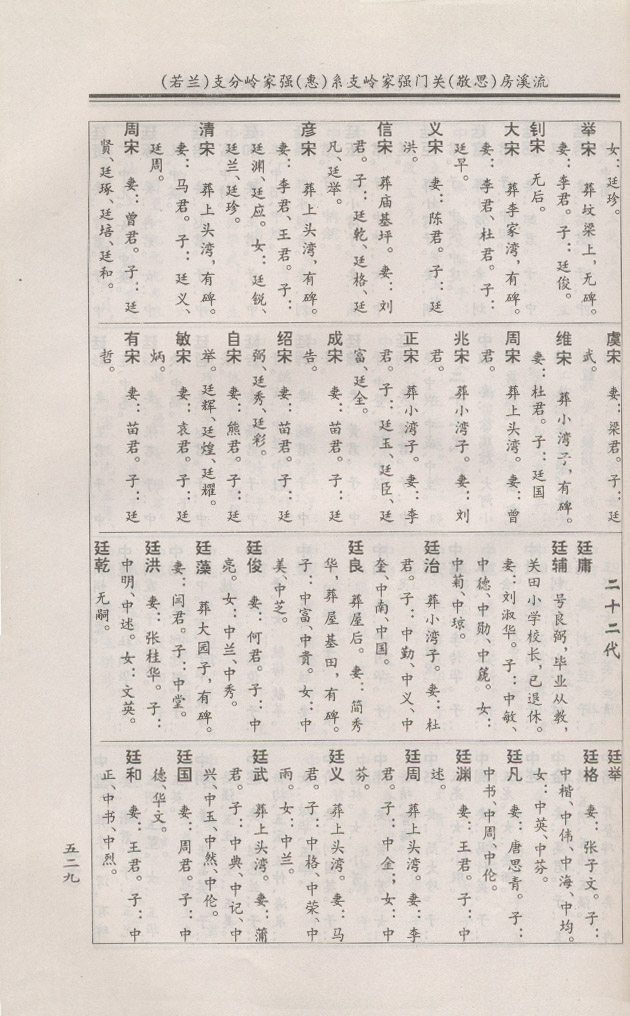 流溪房(思敬)关门强家岭支系(惠)强家岭分支(若兰)
女：廷珍。
举宋　葬坟梁上，无碑。
妻：李君。子：廷俊。
钊宋　无后。
大宋　葬李家湾，有碑。
妻：李君、杜君。子：
廷早。
义宋　妻：陈君。子：廷
洪。
信宋　葬庙基坪。妻：刘
君。子：廷乾、廷格、廷
凡、廷举。
彦宋　葬上头湾，有碑。
妻：李君、王君。子：
廷渊、廷应。女：廷锐、
廷兰、廷珍。
清宋　葬上头湾，有碑。
妻：马君。子：廷义、
廷周。
周宋　妻：曾君。子：廷
贤、廷琢、廷培、廷和。
虞宋　妻：梁君。子：廷
武。
维宋　葬小湾子，有碑。
妻：杜君。子：廷国
周宋　葬上头湾。妻：曾
君。
兆宋　葬小湾子。妻：刘
君。
正宋　葬小湾子。妻：李
君。子：廷玉、廷臣、廷
富、廷全。
成宋　妻：苗君。子：廷
告。
绍宋　妻：苗君。子：廷
弼、廷秀、廷彩。
自宋　妻：熊君。子：廷
举。廷辉、廷煌、廷耀。
敏宋　妻：袁君。子：廷
炳。
有宋　妻：苗君。子：廷
哲。
二十二代
廷庸
廷辅　号良弼，毕业从教，
关田小学校长，已退休。
妻：刘淑华。子：中敏、
中德、中勋、中晟。女：
中菊、中琼。
廷治　葬小湾子。妻：杜
君。子：中勤、中义、中
奎、中南、中国。
廷良　葬屋后。妻：简秀
华，葬屋基田，有碑。
子：中富、中贵。女：中
美、中芝。
廷俊　妻：何君。子：中
亮。女：中兰、中秀。
廷藻　葬大园子，有碑。
妻：闵君。子：中堂。
廷洪　妻：张桂华。子：
中明、中述。女：文英。
廷乾　无嗣。
廷举
廷格　妻：张子文。子：
中楷、中伟、中海、中均。
女：中英、中芬。
廷凡　妻：唐思青。子：
中书、中周、中伦。
廷渊　妻：王君。子：中
述。
廷周　葬上头湾。妻：李
君。子：中金；女：中
芬。
廷义　葬上头湾。妻：马
君。子：中格、中荣、中
雨。女：中兰。
廷武　葬上头湾。妻：蒲
君。子：中典、中记、中
兴、中玉、中然、中伦。
廷国　妻：周君。子：中
德、华文。
廷和　妻：王君。子：中
正、中书、中烈。
五二九